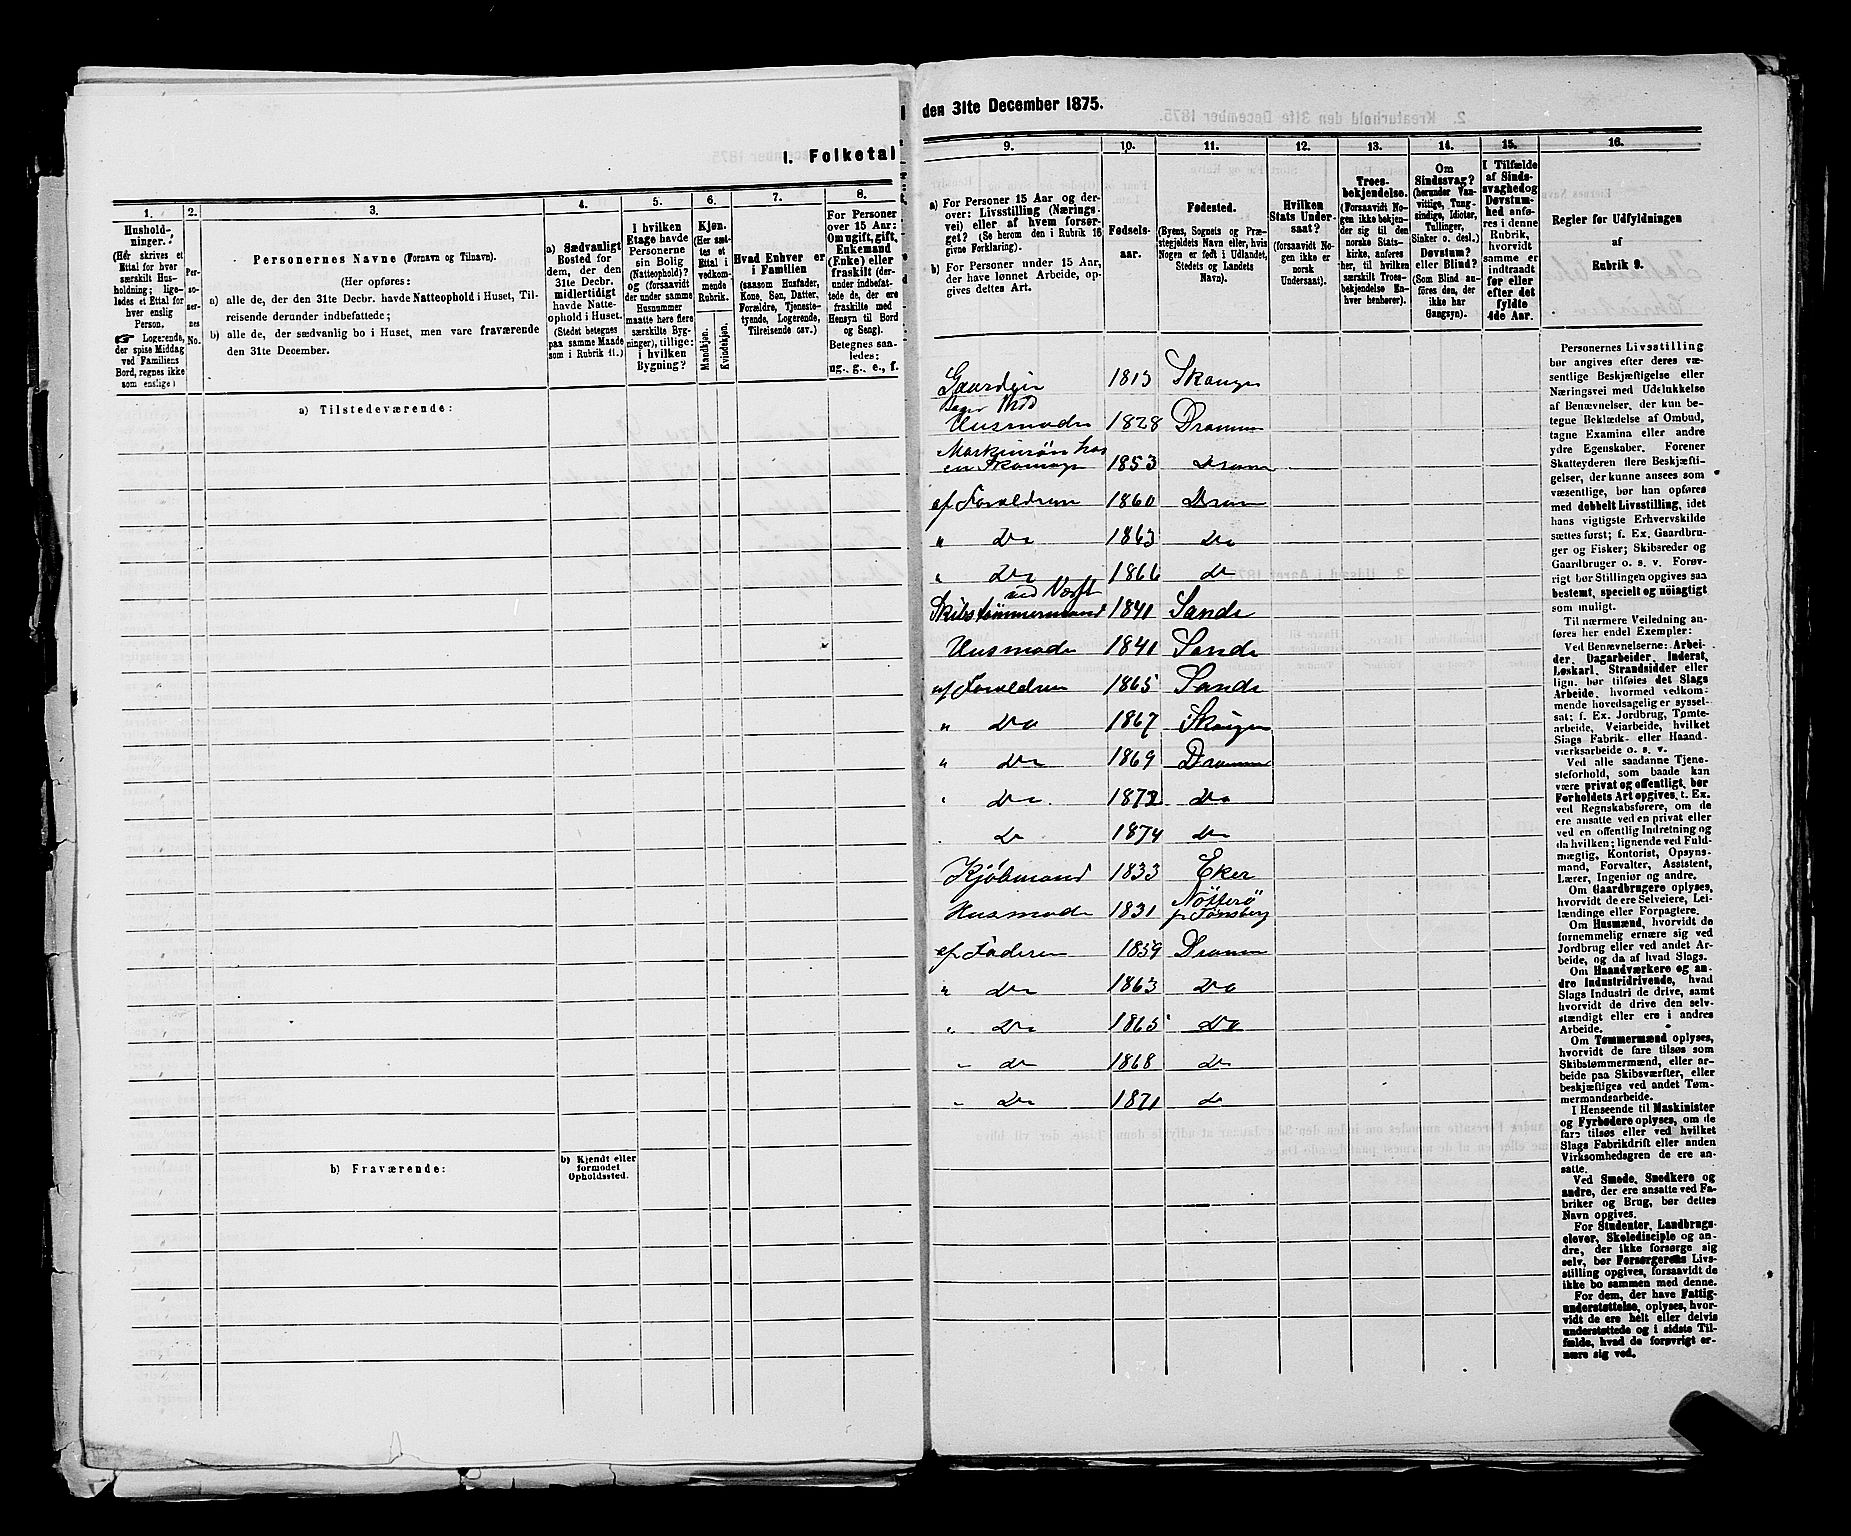 I. Folketal
1.
2.
3.
4.
5.
6.
7.
8.
Hushold-
ninger.
(Her skrives et
Ettal for hver
særskilt Hus-
holdning; lige-
ledes et Ettal for
hver enslig
Person.
☞ Logerende,
der spise Middag
ved Familiens
Bord, regnes ikke
som enslige)
Per-
so-
ner-
nes
No.
Personernes Navne (Fornavn og Tilnavn).
(Her opføres:
a) alle de, der den 31te Decbr. havde Natteophold i Huset, Til-
reisende derunder indbefattede;
b) alle de, der sædvanlig bo i Huset, men vare fraværende
den 31te December.
a) Sædvanligt
Bosted for
dem, der den
31te Decbr.
midlertidigt
havde Natte-
ophold i Huset.
(Stedet betegnes
paa samme Maade
som i Rubrik 11.)
I hvilken
Etage havde
Personerne
sin Bolig
(Natteophold)?
og (forsaavidt
der under samme
Husnummer
maatte høre flere
særskilte Byg-
ninger), tillige:
i hvilken
Bygning?
Kjøn.
(Her sæt-
tes et
Ettal i
vedkom-
mende
Rubrik.
Mandkjøn.
Kvindekjøn.
Hvad Enhver er
i Familien
(saasom Husfader,
Kone, Søn, Datter,
Forældre, Tjeneste-
tyende, Logerende,
Tilreisende osv.)
For Personer
over 15 Aar:
Om ugift, gift,
Enkemand
(Enke) eller
fraskilt (der-
under indbefat-
tede de, der ere
fraskilte med
Hensyn til Bord
og Seng).
Betegnes saa-
ledes:
ug., g., e., f.
a) Tilstedeværende:
b) Fraværende:
b) Kjendt eller
formodet
Opholdssted.
den 31te December 1875.
9.
10.
11.
12.
13.
14.
15.
16.
a) For Personer 15 Aar og der-
over: Livsstilling (Nærings-
vei) eller af hvem forsør-
get? (Se herom den i Rubrik 16
givne Forklaring).
b) For Personer under 15 Aar,
der have lønnet Arbeide, op-
gives dettes Art.
Fødsels-
aar.
Fødested.
(Byens, Sognets og Præ-
stegjeldets Navn eller, hvis
Nogen er født i Udlandet,
Stedets og Landets
Navn).
Hvilken
Stats Under-
saat?
(forsaavidt No-
gen ikke er
norsk
Undersaat).
Troes-
bekjendelse.
(Forsaavidt No-
gen ikke bekjen-
der sig til den
norske Stats-
kirke, anføres
her, til hvilken
særskilt Troes-
bekjendelse En-
hver henhører).
Om
Sindssvag?
(herunder Van-
vittige, Tung-
sindige, Idioter,
Tullinger,
Sinker o. desl.)
Døvstum?
eller Blind?
(Som Blind an-
føres den, der
ikke har
Gangsyn).
I Tilfælde
af Sinds-
svaghed og
Døvstum-
hed anfø-
res i denne
Rubrik,
hvorvidt
samme er
indtraadt
før eller
efter det
fyldte
4de Aar.
Regler for Udfyldningen
af
Rubrik 9.
Gaardeier 1815
Husmoder 1828 Drammen
1853 Dramm
af Forældrene 1860 Dram
" Do 1863 Do
" Do 1866 do
ved Værft
Skibstømmermand 1841 Sande
Husmoder 1841 Sande
af Forældrene 1865 Sande
" Do 1867 Skouger
" Do 1869 Drammen
" Do 1872 Do
" Do 1874 do
Kjøbmand 1833 Eker
Husmoder 1831 Nøtterø
pr Tønsberg
af Faderen 1859 Drammen
" Do 1863 Do
" Do 1865 Do
" do 1868 do
" Do 1871 do
Personernes Livsstilling
bør angives efter deres væ-
sentlige Beskjæftigelse eller
Næringsvei med Udelukkelse
af Benævnelser, der kun be-
tegne Beklædelse af Ombud,
tagne Examina eller andre
ydre Egenskaber. Forener
Skatteyderen flere Beskjæfti-
gelser, der kunne ansees som
væsentlige, bør han opføres
med dobbelt Livsstilling, idet
hans vigtigste Erhvervskilde
sættes først; f. Ex. Gaardbru-
ger og Fisker; Skibsreder og
Gaardbruger o. s. v. Forøv-
rigt bør Stillingen opgives saa
bestemt, specielt og nøiagtigt
som muligt.
Til nærmere Veiledning an-
føres her endel Exempler:
Ved Benævnelserne: Arbei-
der, Dagarbeider, Inderst,
Løskarl, Strandsidder eller
lign. bør tilføies det Slags
Arbeide, hvormed vedkom-
mende hovedsagelig er syssel-
sat; f. Ex. Jordbrug, Tømte-
arbeide, Veiarbeide, hvilket
Slags Fabrik- eller Haand-
værksarbeide o. s. v.
Ved alle saadanne Tjene-
steforhold, som baade kan
være privat og offentligt, bør
Forholdets Art opgives, t. Ex.
ved Regnskabsførere, om de
ere ansatte ved en privat eller
ved en offentlig Indretning og
da hvilken; lignende ved Fuld-
mægtig, Kontorist, Opsyns-
mand, Forvalter, Assistent,
Lærer, Ingeniør og andre.
Om Gaardbrugere oplyses,
hvorvidt de ere Selveiere, Lei-
lændinge eller Forpagtere.
Om Husmænd, hvorvidt de
fornemmelig ernære sig ved
Jordbrug eller ved andet Ar-
beide, og da af hvad Slags.
Om Haandværkere og an-
dre Industridrivende, hvad
Slags Industri de drive, samt
hvorvidt de drive den selv-
stændigt eller ere i andres
Arbeide.
Om Tømmermænd oplyses,
hvorvidt de fare tilsøs som
Skibstømmermænd, eller ar-
beide paa Skibsværfter, eller
beskjæftiges ved andet Tøm-
mermandsarbeide.
I Henseende til Maskinister
og Fyrbødere oplyses, om de
fare tilsøs eller ved hvilket
Slags Fabrikdrift eller anden
Virksomhedsgren de ere an-
satte.
Ved Smede, Snedkere og
andre, der ere ansatte ved Fa-
briker og Brug, bør dettes
Navn opgives.
For Studenter, Landbrugs-
elever, Skoledisciple og an-
dre, der ikke forsørge sig
selv, bør Forsørgerens Livs-
stilling opgives, forsaavidt de
ikke bo sammen med denne.
For dem, der have Fattig-
understøttelse, oplyses, hvor-
vidt de ere helt eller delvis
understøttede og i sidste Til-
fælde, hvad de forøvrigt er-
nære sig ved.